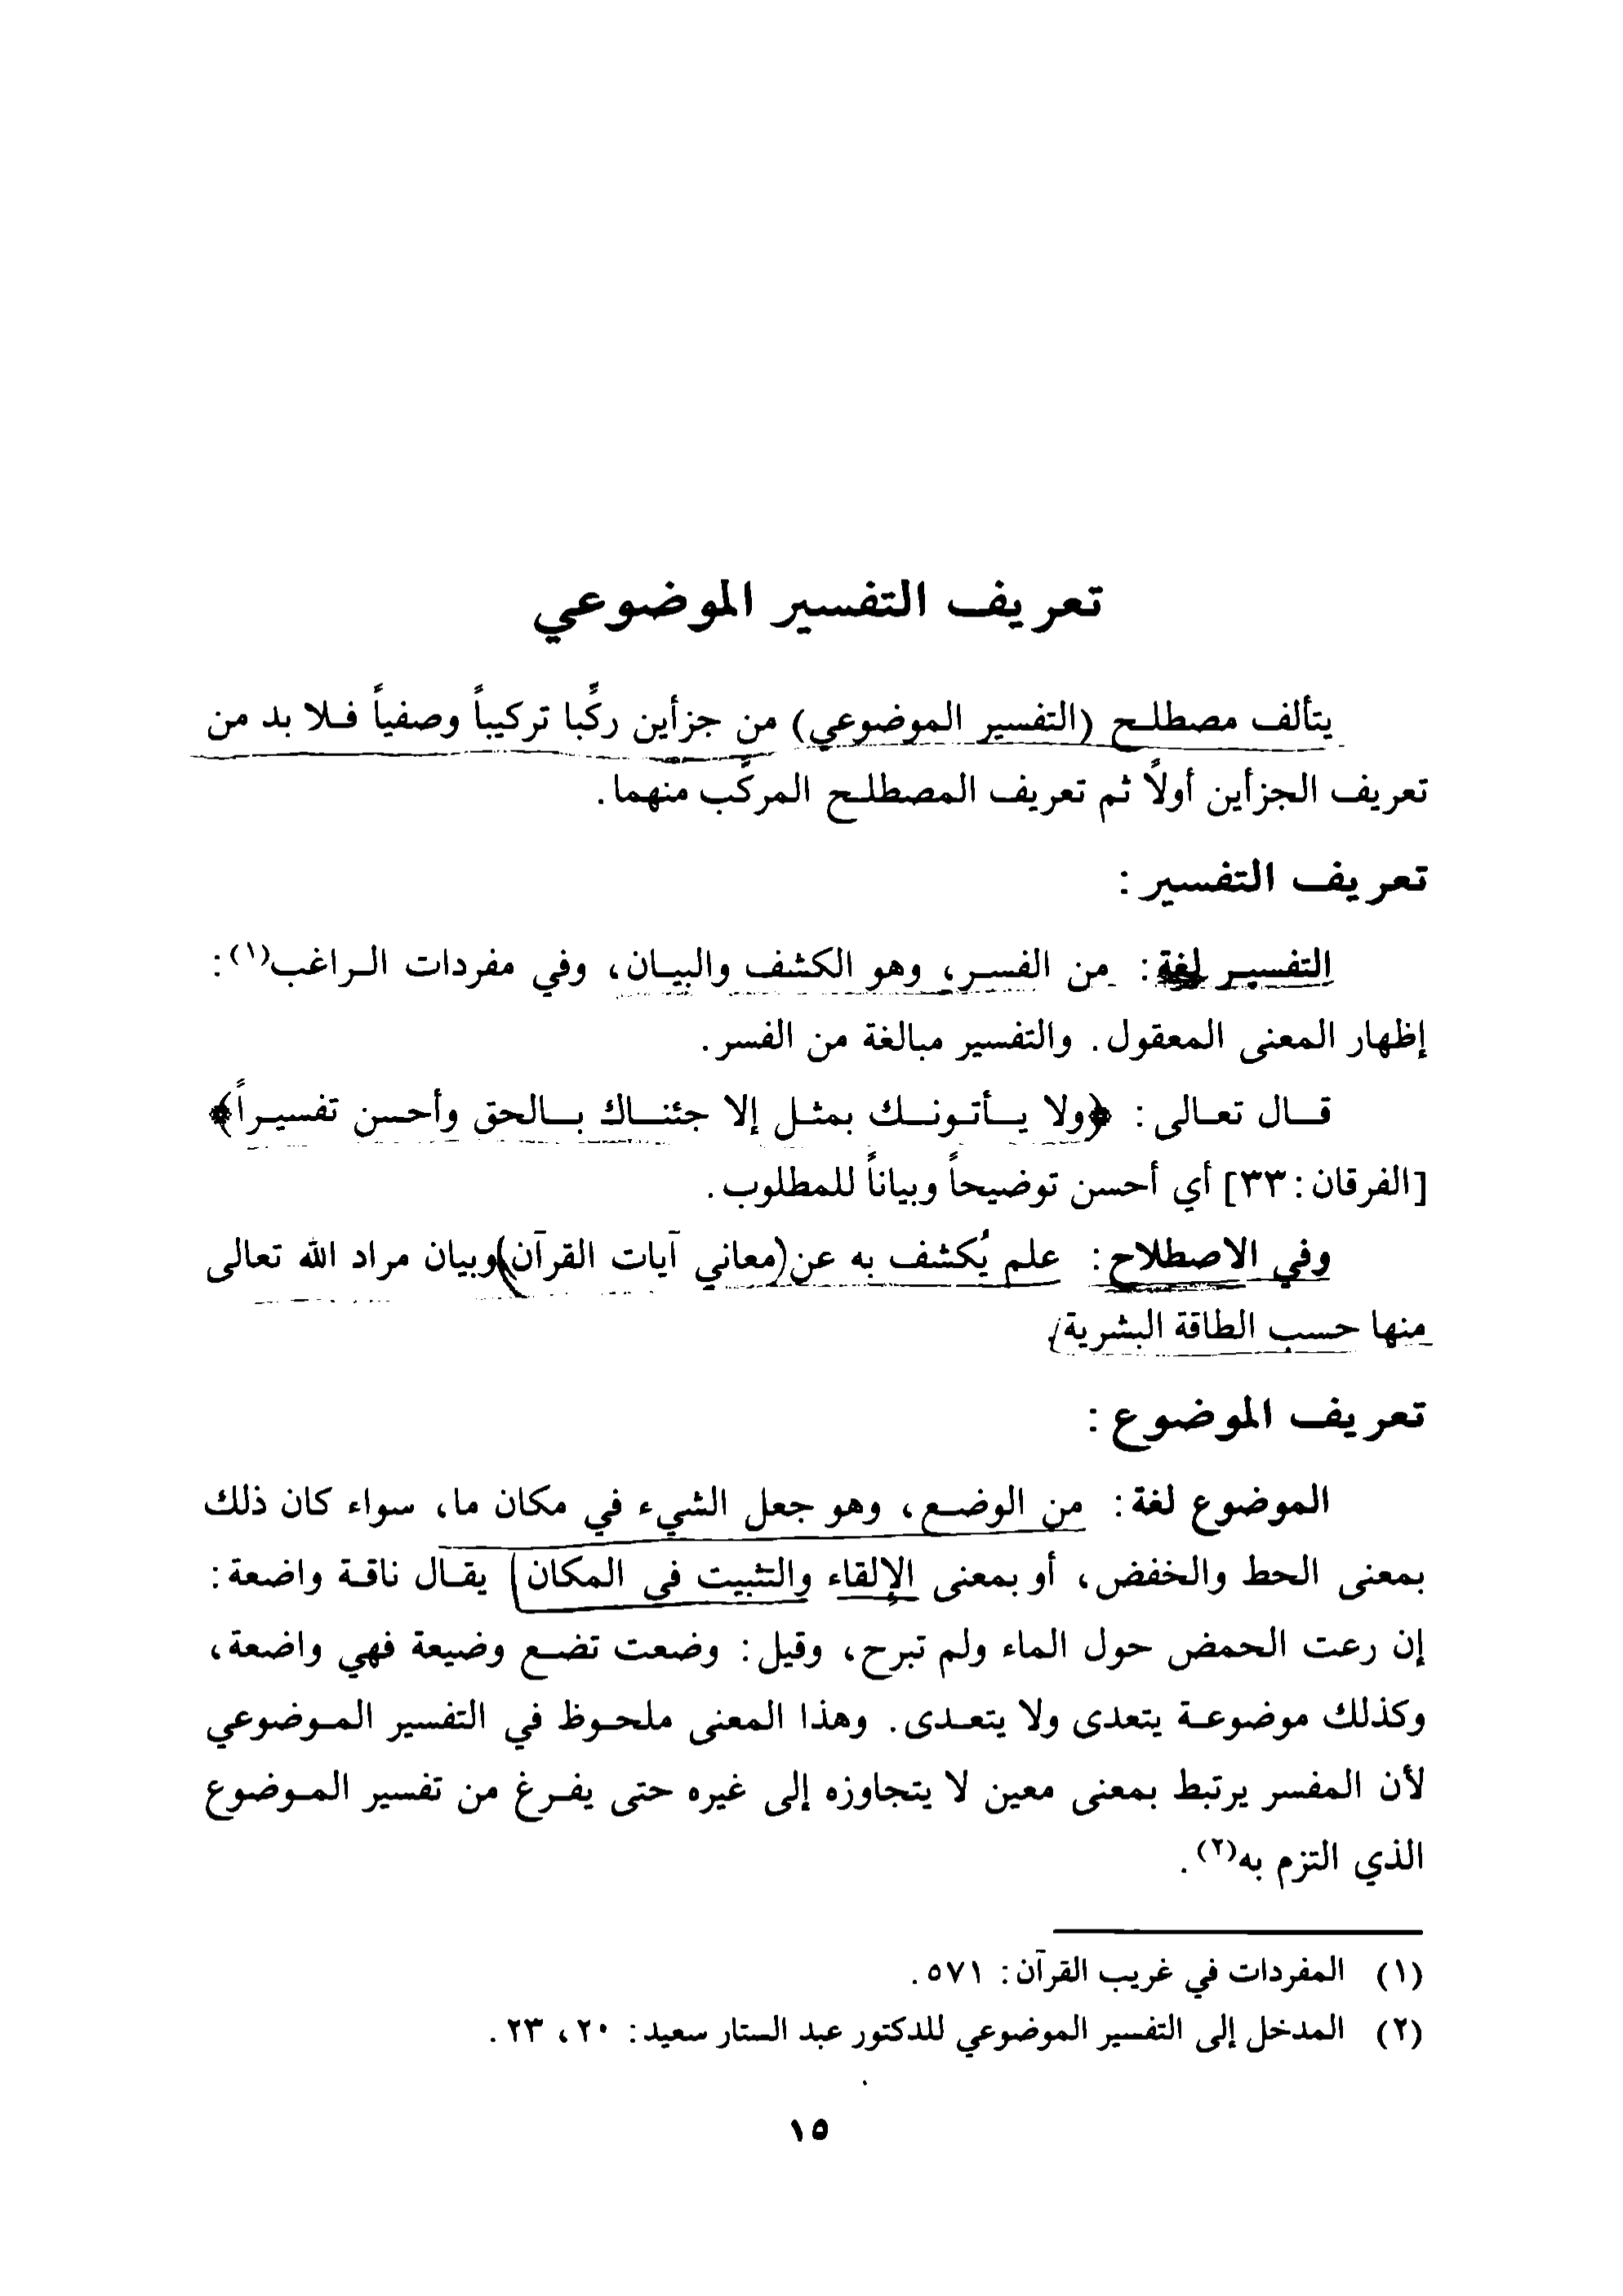 تعريف التفسير الموضوعي
يتألف مصطلح (التفسير الموضوعي) من جزأين ركِّبا تركيباً وصفياً فلا بد من
تعريف الجزأين أولاً ثم تعريف المصطلح المركَّب منهما.
تعريف التفسير:
التفسير لغة: من الفسر، وهو الكشف والبيان، وفي مفردات الراغب(١):
إظهار المعنى المعقول. والتفسير مبالغة من الفسر.
قال تعالى: ﴿ولا يأتونك بمثل إلا جئناك بالحق وأحسن تفسيراً﴾
[الفرقان: ٣٣] أي أحسن توضيحاً وبياناً للمطلوب.
وفي الاصطلاح: علم يُكشف به عن (معاني آيات القرآن) وبيان مراد الله تعالى
منها حسب الطاقة البشرية.
تعريف الموضوع:
الموضوع لغة: من الوضع، وهو جعل الشيء في مكان ما، سواء كان ذلك
بمعنى الحط والخفض، أو بمعنى الإلقاء والتثبيت في المكان، يقال ناقة واضعة:
إن رعت الحمض حول الماء ولم تبرح، وقيل: وضعت تضع وضيعة فهي واضعة،
وكذلك موضوعة يتعدى ولا يتعدى. وهذا المعنى ملحوظ في التفسير الموضوعي
لأن المفسر يرتبط بمعنى معين لا يتجاوزه إلى غيره حتى يفرغ من تفسير الموضوع
الذي التزم به(٢).
(١) المفردات في غريب القرآن: ٥٧١.
(٢) المدخل إلى التفسير الموضوعي للدكتور عبد الستار سعيد: ٢٠، ٢٣.
١٥